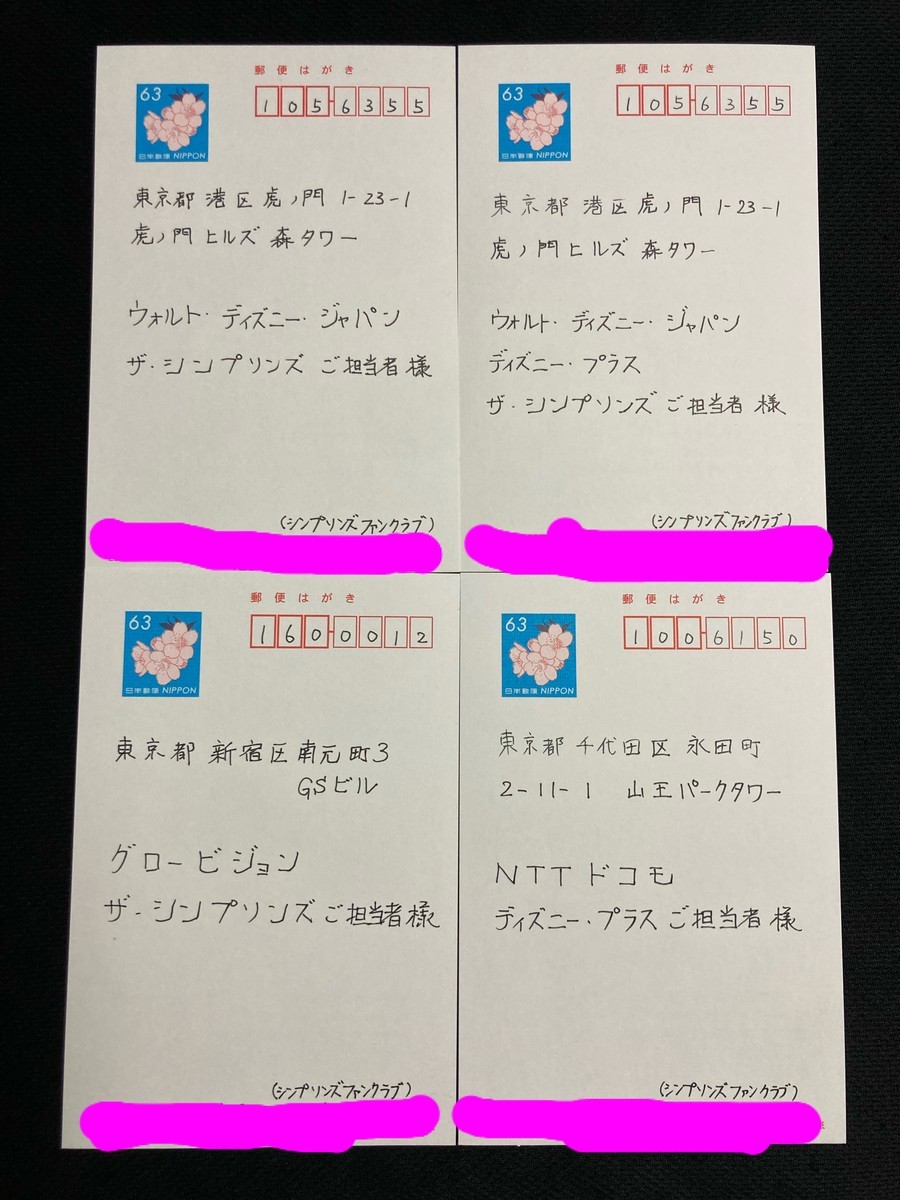 郵便はがき
63
日本郵便 NIPPON
1056355
東京都 港区 虎ノ門 1-23-1
虎ノ門 ヒルズ 森タワー
ウォルト・ディズニー・ジャパン
ザ・シンプソンズ ご担当者 様
(シンプソンズファンクラブ)
郵便はがき
63
日本郵便 NIPPON
1056355
東京都 港区 虎ノ門 1-23-1
虎ノ門 ヒルズ 森タワー
ウォルト・ディズニー・ジャパン
ディズニー・プラス
ザ・シンプソンズ ご担当者 様
(シンプソンズファンクラブ)
郵便はがき
63
日本郵便 NIPPON
1600012
東京都 新宿区 南元町3
GSビル
グロービジョン
ザ・シンプソンズ ご担当者 様
(シンプソンズファンクラブ)
郵便はがき
63
日本郵便 NIPPON
1006150
東京都 千代田区 永田町
2-11-1 山王パークタワー
NTTドコモ
ディズニー・プラス ご担当者 様
(シンプソンズファンクラブ)